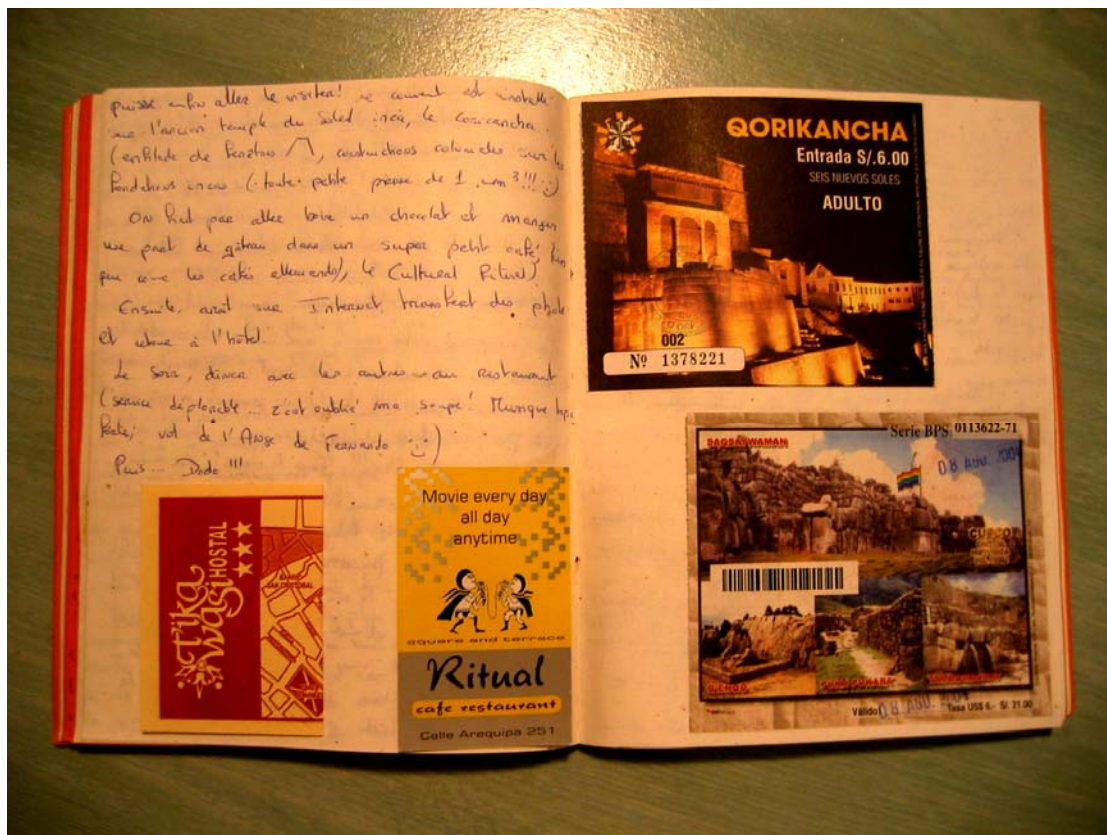 puisse enfin aller le visiter! ce couvent est installé
sur l'ancien temple du Soleil inca, le Coricancha.
(enfilade de fenêtres, constructions coloniales sur les
fondations incas (toute petite pierre de 1 cm³!!! :)
On finit par aller boire un chocolat et manger
une part de gâteau dans un super petit café,
peu comme les cafés allemands), le Cultural Ritual).
Ensuite, arrêt sur Internet, transfert des photos
et retour à l'hôtel.
Le soir, dîner avec les autres au restaurant
(service déplorable... z'ont oublié ma soupe! Musique
vol de l'Ange de Fernando :)
Puis... Dodo !!!
T'ika
Wasi HOSTAL
BARRIO
SAN CRISTOBAL
Movie every day
all day
anytime
square and terrace
Ritual
cafe restaurant
Calle Arequipa 251
QORIKANCHA
Entrada S/.6.00
SEIS NUEVOS SOLES
ADULTO
002
Nº 1378221
Serie BPS 0113622-71
SAQSAYWAMAN
08 AGO. 200
CUSCO
Q'ENQO
PUKA PUKARA
Válido 08 AGO. Tasa US$ 6.- S/. 21.00